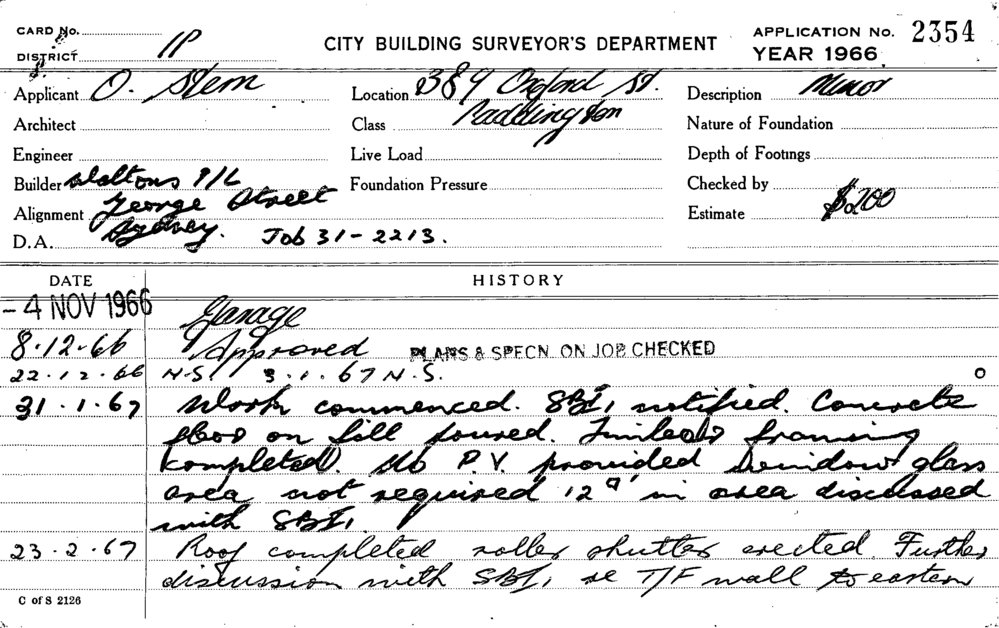 CARD No. 1P
CITY BUILDING SURVEYOR'S DEPARTMENT
APPLICATION No. 2354
DISTRICT
YEAR 1966
Applicant O. Stern
Location 389 Oxford St.
Description Minor
Architect
Class Paddington
Nature of Foundation
Engineer
Live Load
Depth of Footings
Builder Waltons P/L
Foundation Pressure
Checked by
Alignment George Street
Estimate $200
D.A. Sydney. Job 31-2213.
DATE HISTORY
- 4 NOV 1966 Garage
8.12.66 Approved PLANS & SPECN. ON JOB CHECKED
22.12.66 N.S. 3.1.67 N.S.
31.1.67 Work commenced. SBI, notified. Concrete
floor on fill poured. Timber framing
completed. No P.V. provided window glass
area not required 12□' in area discussed
with SBI,
23.2.67 Roof completed roller shutter erected. Further
discussion with SBI, re T/F wall to eastern
C of S 2126